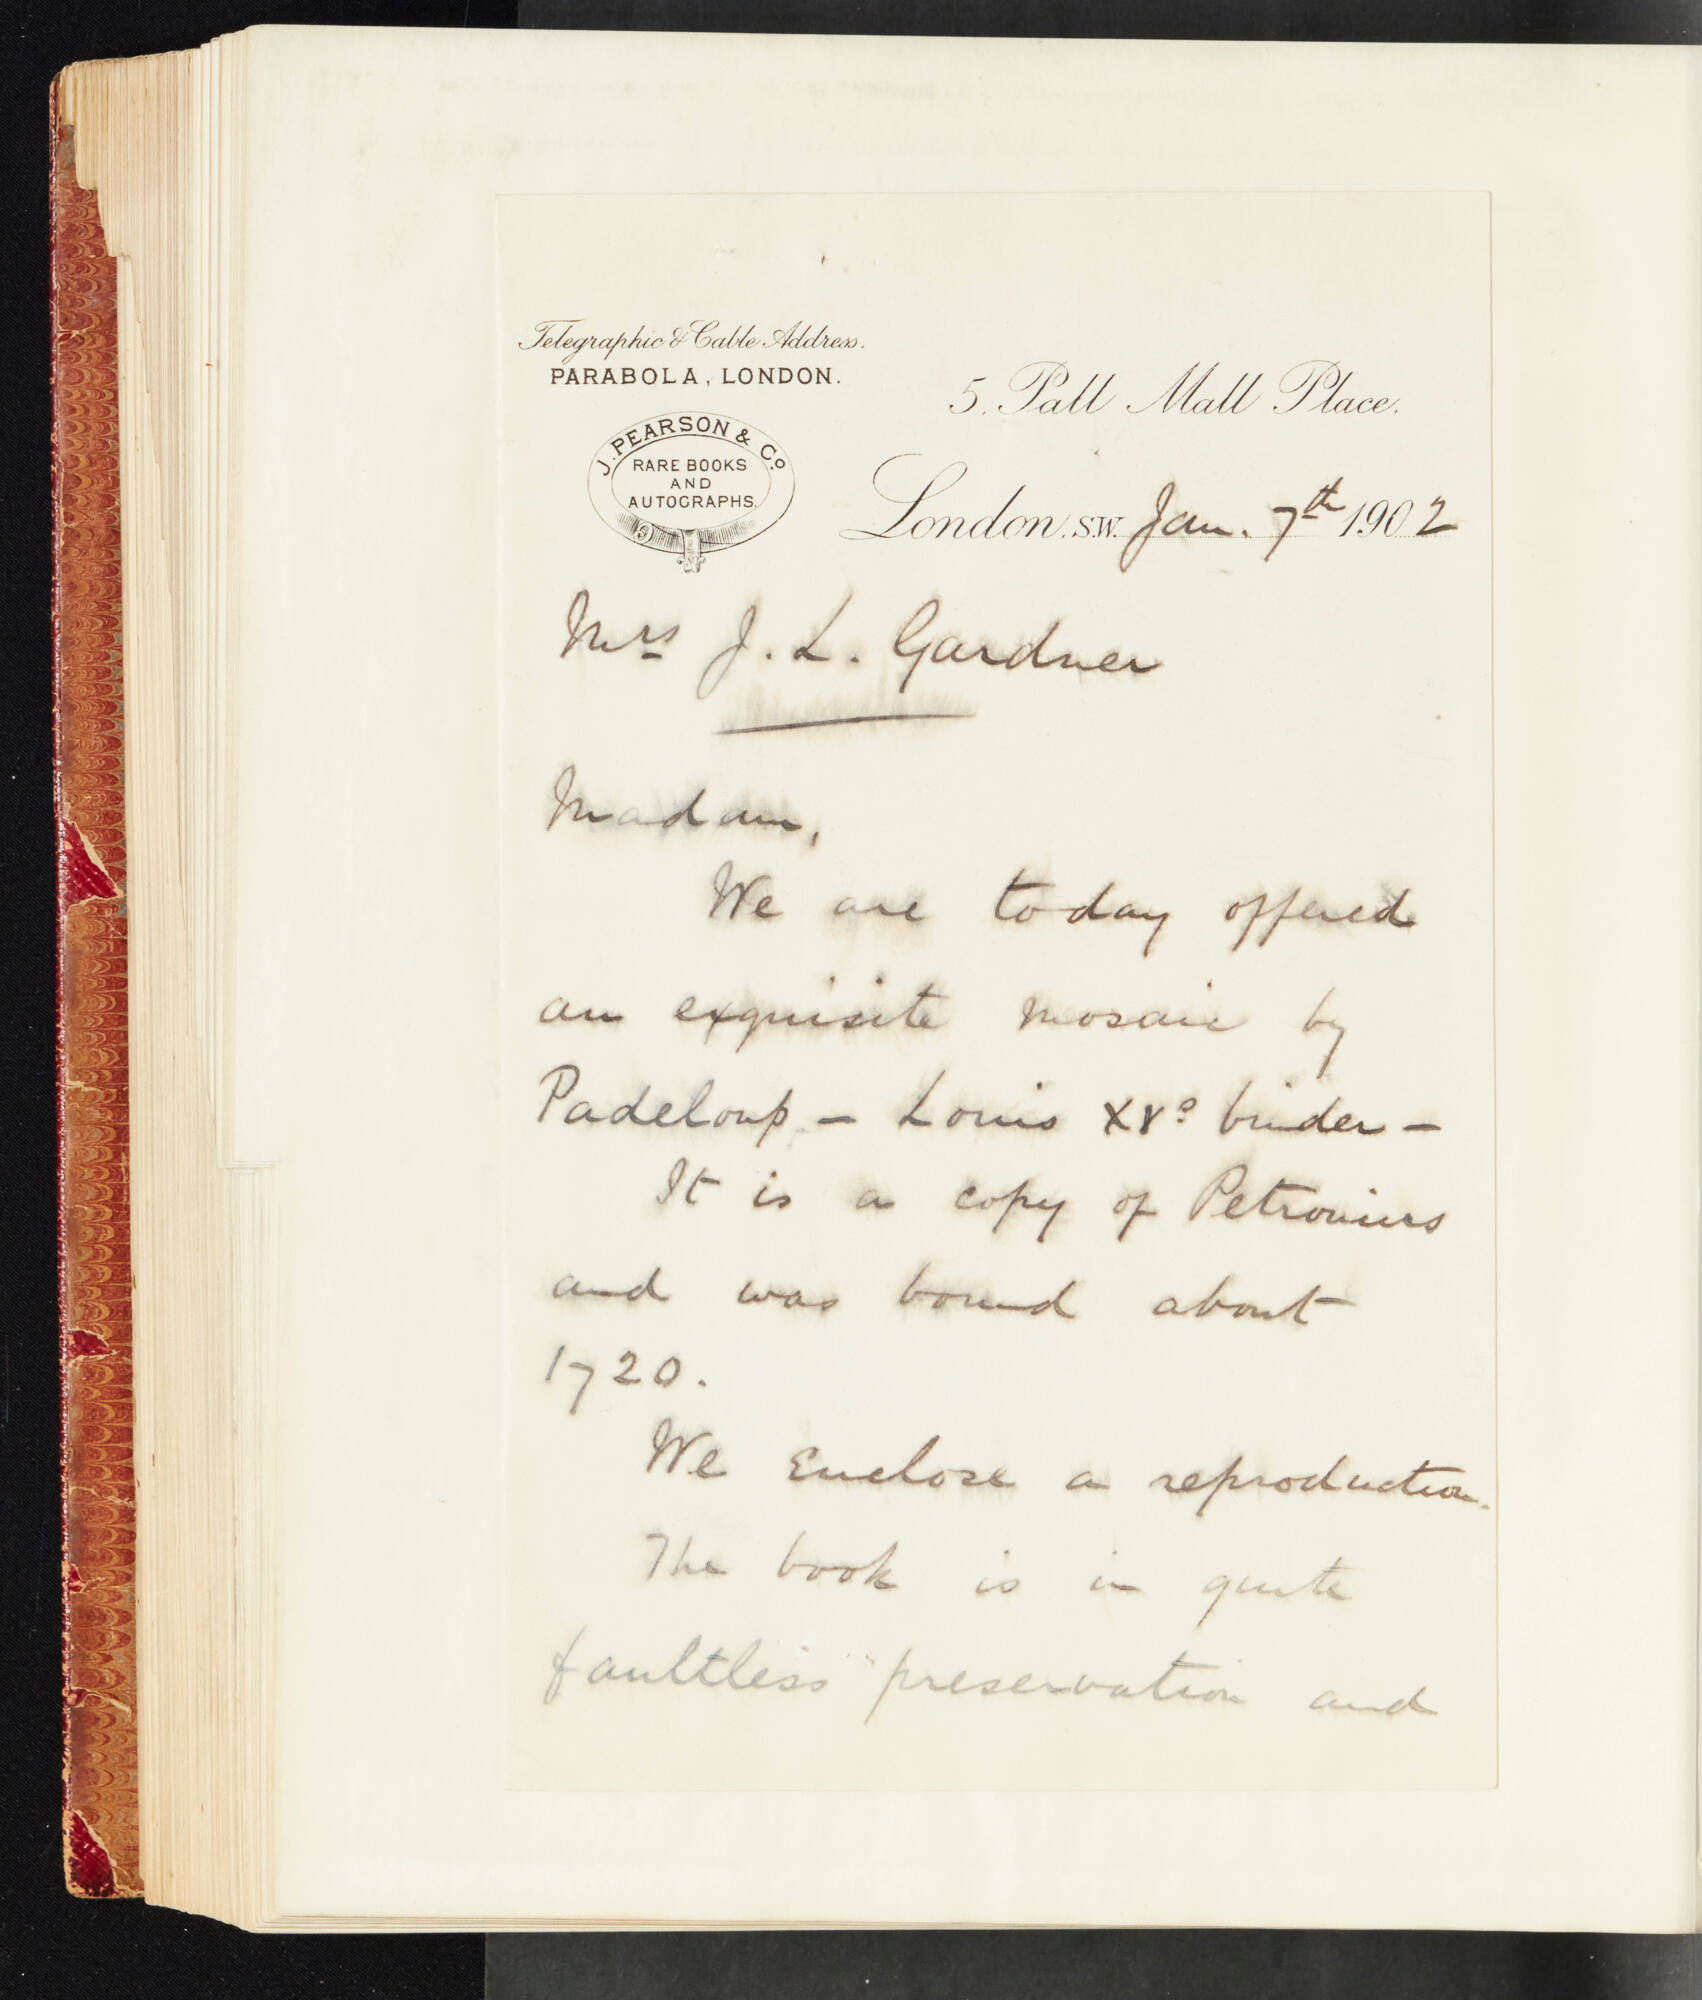 Telegraphic & Cable Address.
PARABOLA, LONDON.
J. PEARSON & Co
RARE BOOKS
AND
AUTOGRAPHS.
5. Pall Mall Place.
London. S.W. Jan. 7th 1902
Mrs J. L. Gardner
Madam,
We are to-day offered
an exquisite mosaic by
Padeloup - Louis XVs binder -
It is a copy of Petronius
and was bound about
1720.
We enclose a reproduction.
The book is in quite
faultless preservation and